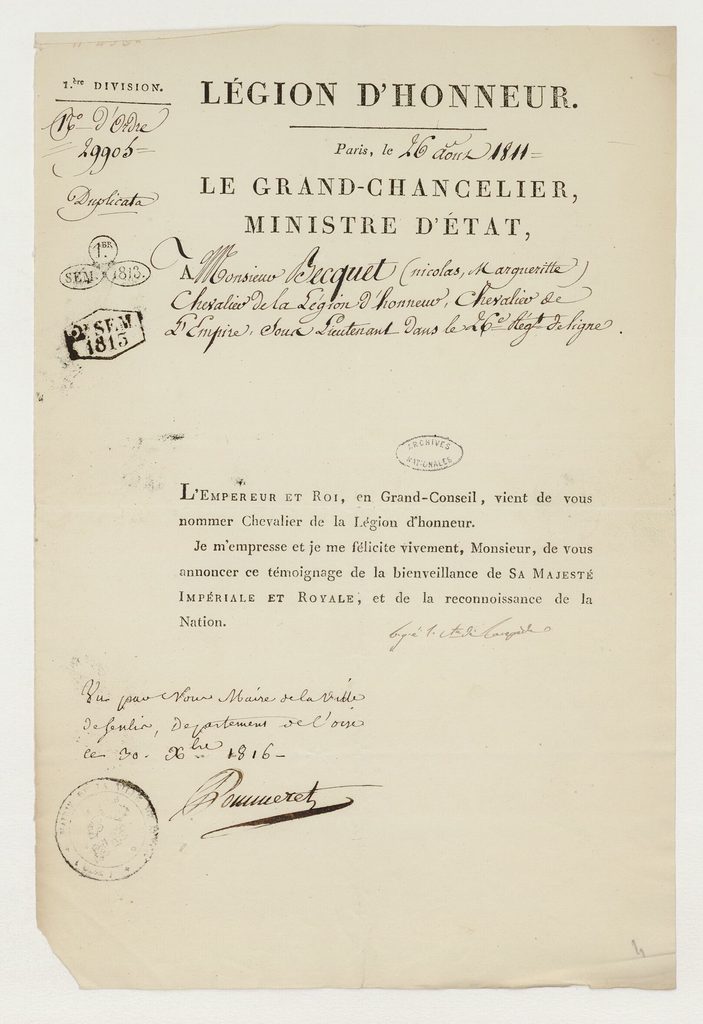 1.ère DIVISION.
LÉGION D'HONNEUR.
N.º d'Ordre
29905
Duplicata
Paris, le 26 août 1811
LE GRAND-CHANCELIER,
MINISTRE D'ÉTAT,
1.ER
SEM. 1813.
2e SEM
1813
A Monsieur Becquet (nicolas, Margueritte)
Chevalier de la Légion d'honneur, Chevalier de
L'Empire, Sous Lieutenant dans le 26e Régt de ligne.
ARCHIVES
NATIONALES
L'EMPEREUR ET ROI, en Grand-Conseil, vient de vous
nommer Chevalier de la Légion d'honneur.
Je m'empresse et je me félicite vivement, Monsieur, de vous
annoncer ce témoignage de la bienveillance de SA MAJESTÉ
IMPÉRIALE ET ROYALE, et de la reconnoissance de la
Nation.
Vu par Nous Maire de la Ville
de Senlis, Departement de l'oise
ce 30. Xbre 1816
Pommeret